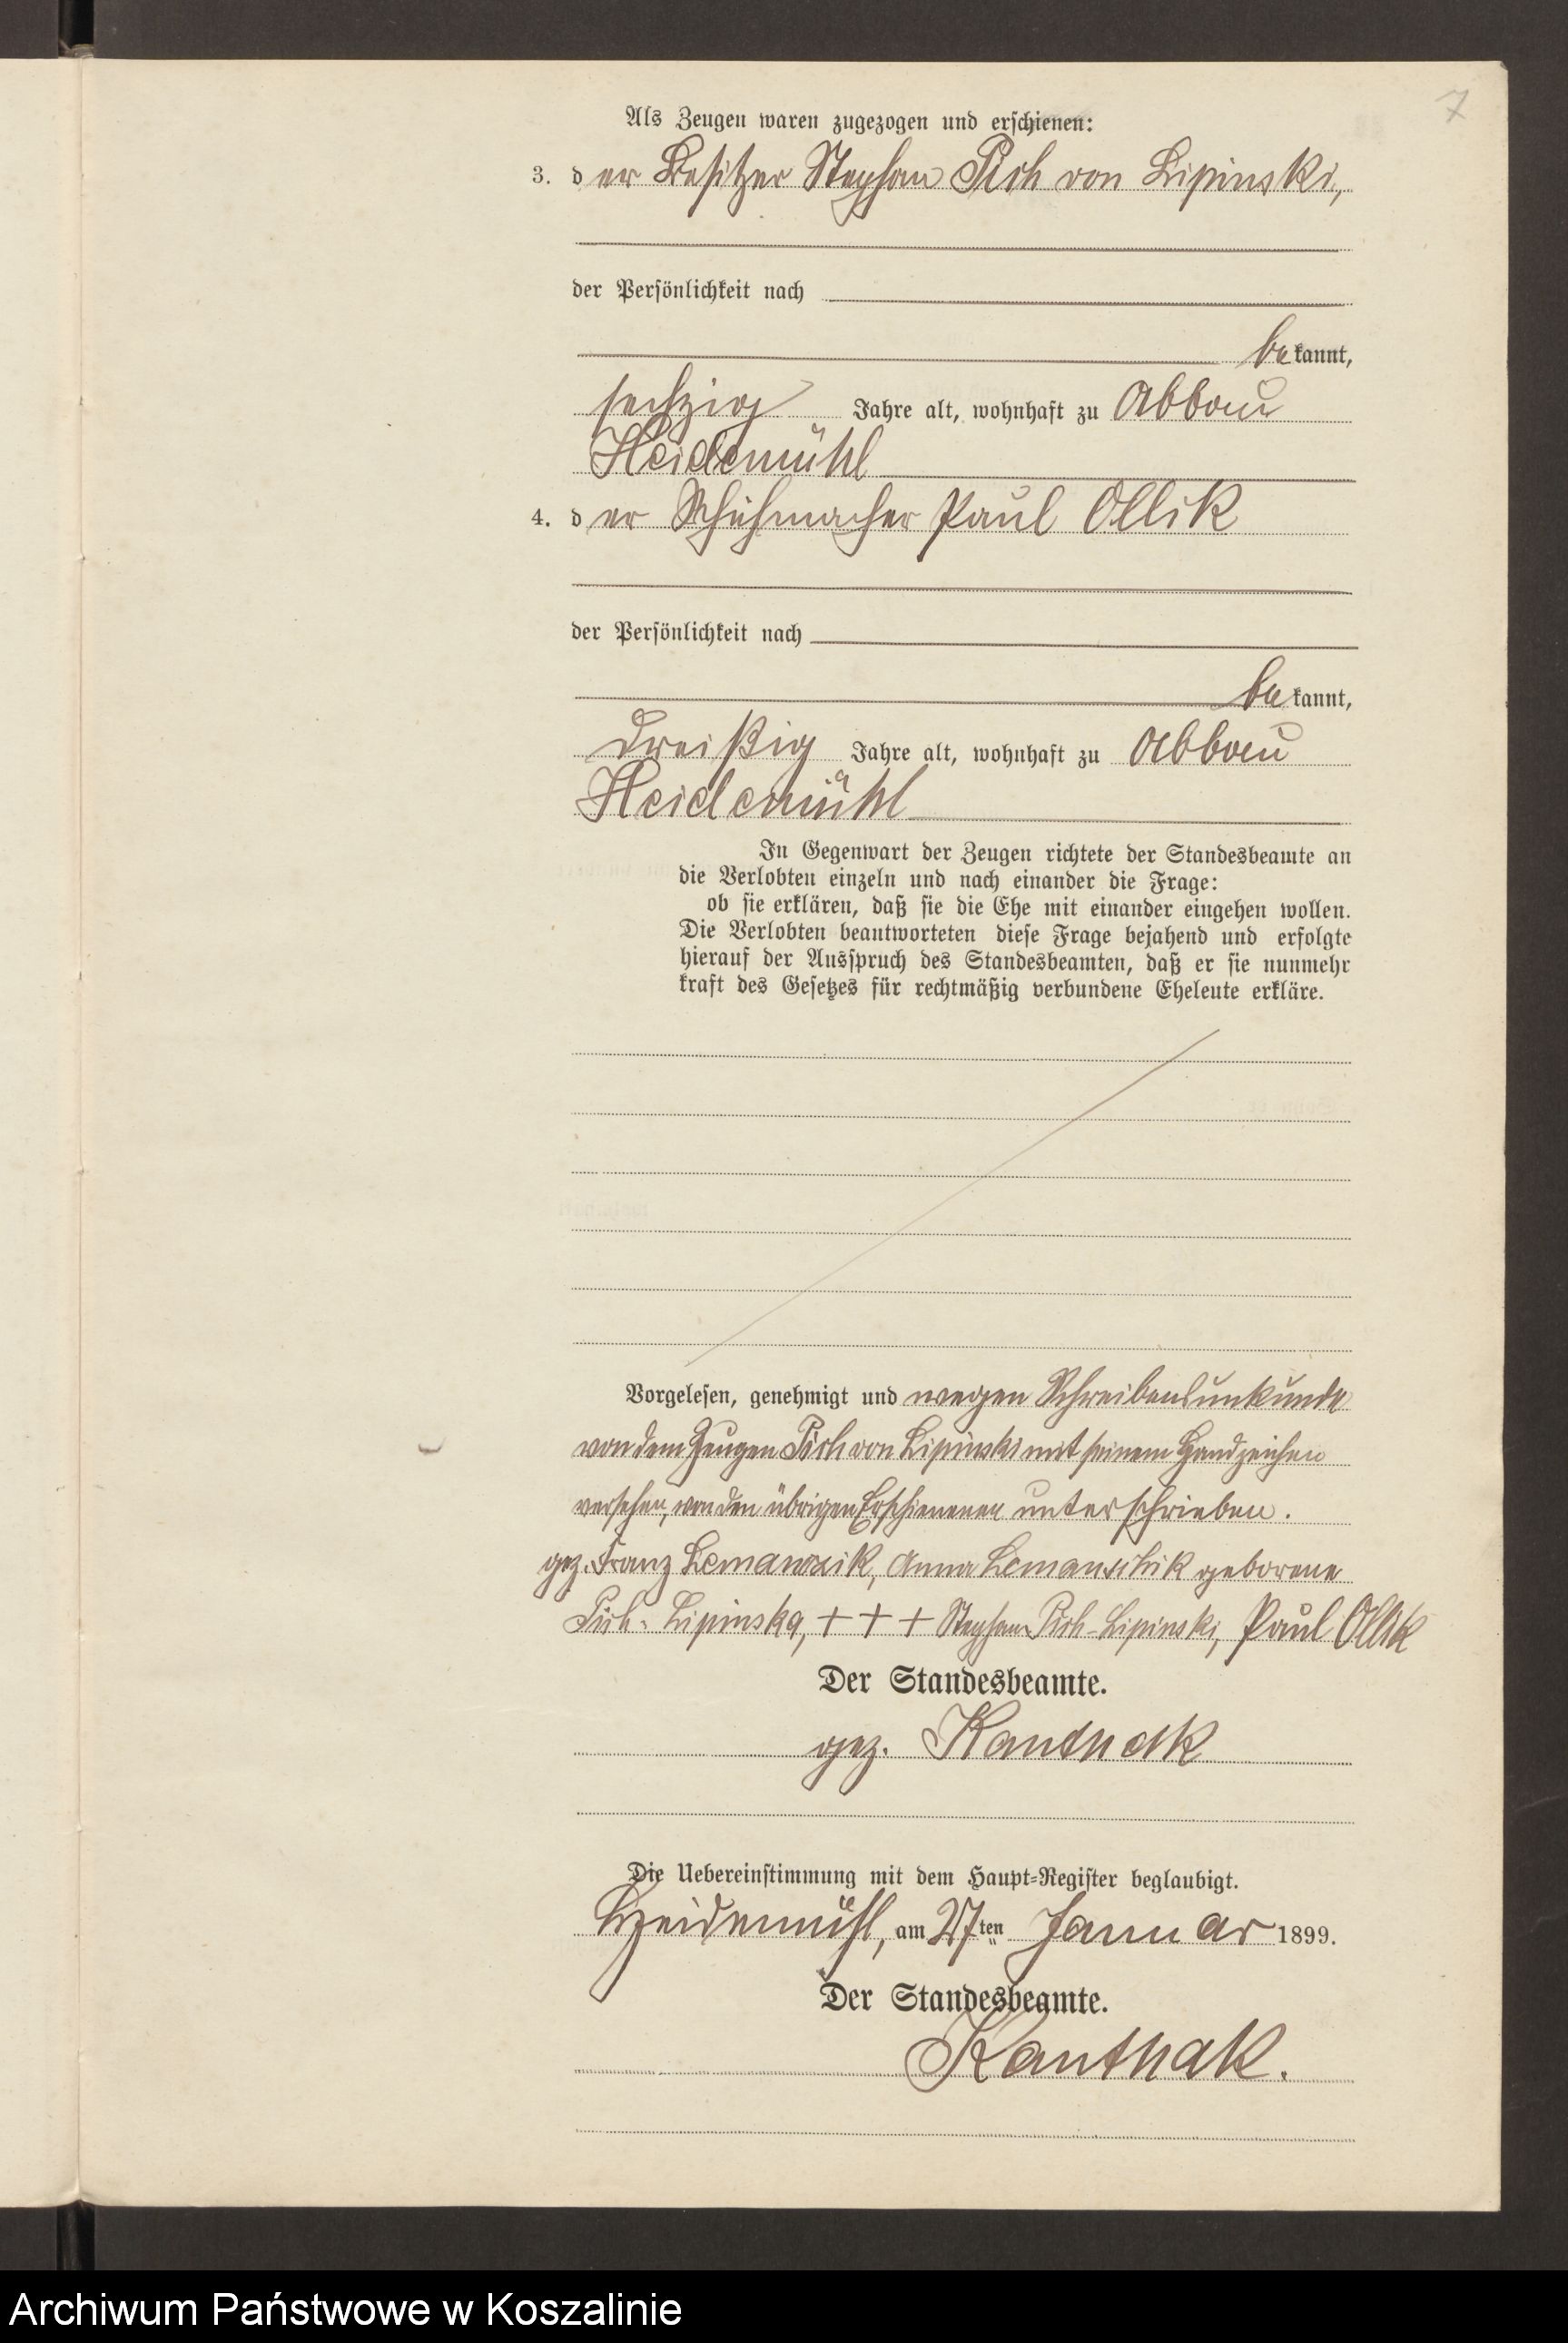 7
Als Zeugen waren zugezogen und erschienen:
3. der Besitzer Stephan Pich von Lipinski,
der Persönlichkeit nach
bekannt,
sechzig Jahre alt, wohnhaft zu Abbau
Heidemühl
4. der Schuhmacher Paul Ollik
der Persönlichkeit nach
bekannt,
dreißig Jahre alt, wohnhaft zu Abbau
Heidemühl
In Gegenwart der Zeugen richtete der Standesbeamte an
die Verlobten einzeln und nach einander die Frage:
ob sie erklären, daß sie die Ehe mit einander eingehen wollen.
Die Verlobten beantworteten diese Frage bejahend und erfolgte
hierauf der Ausspruch des Standesbeamten, daß er sie nunmehr
kraft des Gesetzes für rechtmäßig verbundene Eheleute erkläre.
Vorgelesen, genehmigt und wegen Schreibensunkunde
von dem Zeugen Pich von Lipinski mit seinem Handzeichen
versehen, von den übrigen Erschienenen unterschrieben.
gez. Franz Lemanczik, Anna geborene
Pich-Lipinska, + + + Stephan Pich-Lipinski, Paul Ollik
Der Standesbeamte.
gez. Kanthak
Die Uebereinstimmung mit dem Haupt-Register beglaubigt.
Heidemühl, am 27ten Januar 1899.
Der Standesbeamte.
Kanthak.
Archiwum Państwowe w Koszalinie